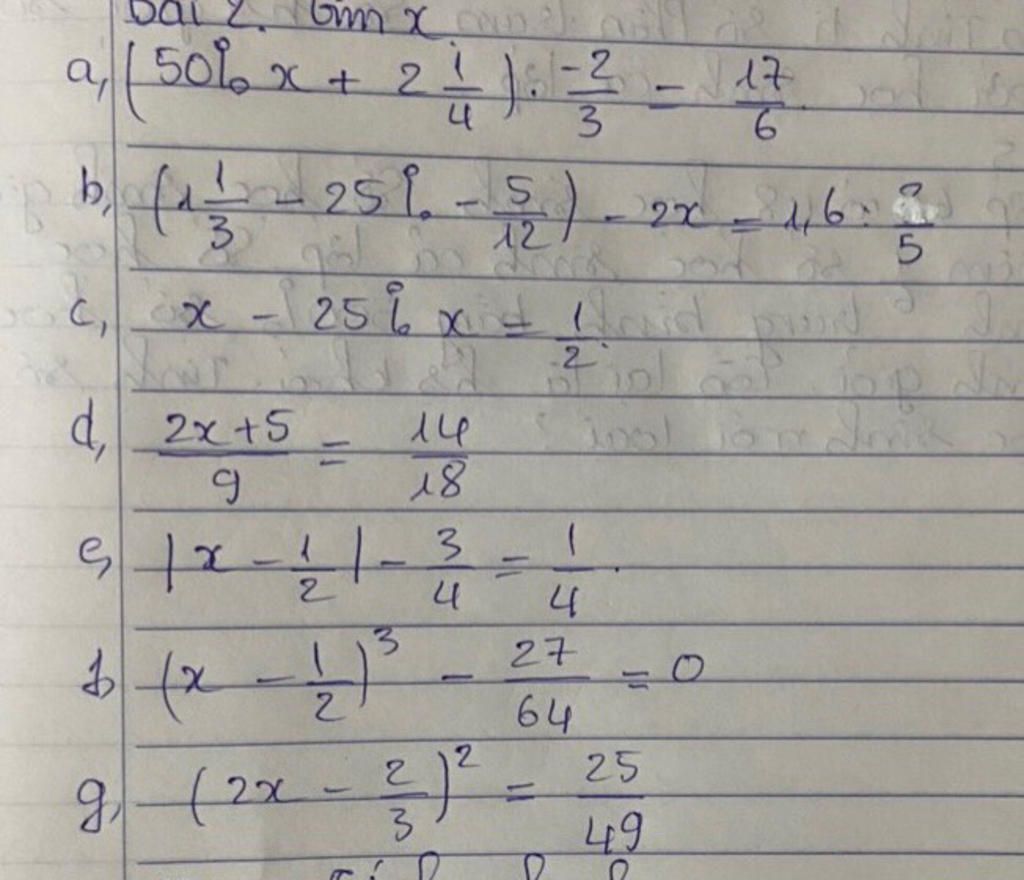 bài 2. tìm x
a, (50% x + 2 1/4) . -2/3 = 17/6
b, (1 1/3 - 25% - 5/12) - 2x = 1,6 : /5
c, x - 25% x = 1/2.
d, 2x+5/9 = 14/18
e, |x - 1/2| - 3/4 = 1/4.
f, (x - 1/2)^3 - 27/64 = 0
g, (2x - 2/3)^2 = 25/49